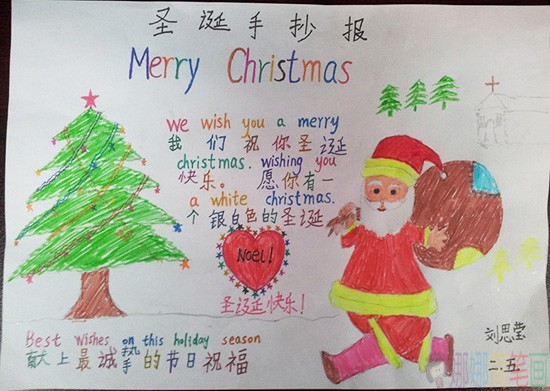 圣诞手抄报
Merry Christmas
we wish you a merry
我们祝你圣诞
christmas. wishing you
快乐。 愿你有一
a white christmas.
个银白色的圣诞
Noel!
圣诞快乐!
Best wishes on this holiday season
献上最诚挚的节日祝福
刘思莹
二.五
娜娜简笔画